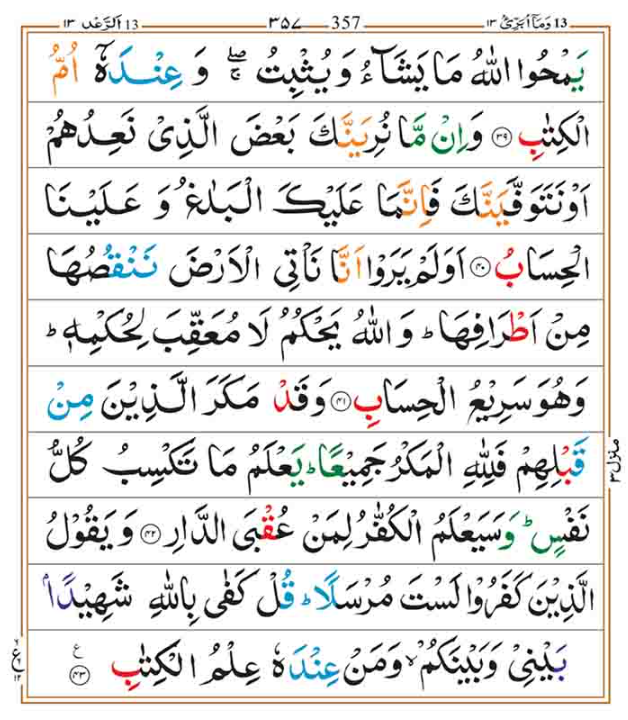 13 وَمَآ اُبَرِّئُ ١٣
357 ٣٥٧
13 اَلرَّعْد ١٣
يَمْحُوا اللّٰهُ مَا يَشَآءُ وَ يُثْبِتُ ۖۚ وَ عِنْدَهٗۤ اُمُّ
الْكِتٰبِ ۝٣٩ وَ اِنْ مَّا نُرِيَنَّكَ بَعْضَ الَّذِىْ نَعِدُهُمْ
اَوْ نَتَوَفَّيَنَّكَ فَاِنَّمَا عَلَيْكَ الْبَلٰغُ وَ عَلَيْنَا
الْحِسَابُ ۝٤٠ اَوَلَمْ يَرَوْا اَنَّا نَاْتِى الْاَرْضَ نَنْقُصُهَا
مِنْ اَطْرَافِهَا ؕ وَ اللّٰهُ يَحْكُمُ لَا مُعَقِّبَ لِحُكْمِهٖ ؕ
وَهُوَ سَرِيْعُ الْحِسَابِ ۝٤١ وَ قَدْ مَكَرَ الَّذِيْنَ مِنْ
قَبْلِهِمْ فَلِلّٰهِ الْمَكْرُ جَمِيْعًا ؕ يَعْلَمُ مَا تَكْسِبُ كُلُّ
نَفْسٍ ؕ وَ سَيَعْلَمُ الْكُفّٰرُ لِمَنْ عُقْبَى الدَّارِ ۝٤٢ وَ يَقُوْلُ
الَّذِيْنَ كَفَرُوْا لَسْتَ مُرْسَلًا ؕ قُلْ كَفٰى بِاللّٰهِ شَهِيْدًۢا
بَيْنِىْ وَبَيْنَكُمْ ۙ وَمَنْ عِنْدَهٗ عِلْمُ الْكِتٰبِ ۝٤٣
منزل ٣
ع